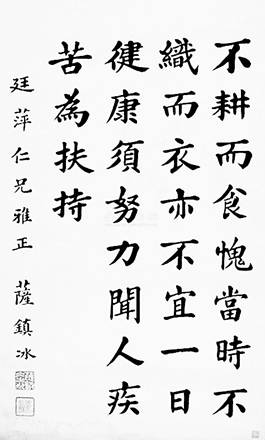 不耕而食愧當時不
織而衣亦不宜一日
健康須努力聞人疾
苦為扶持
廷萍仁兄雅正
薩鎮冰